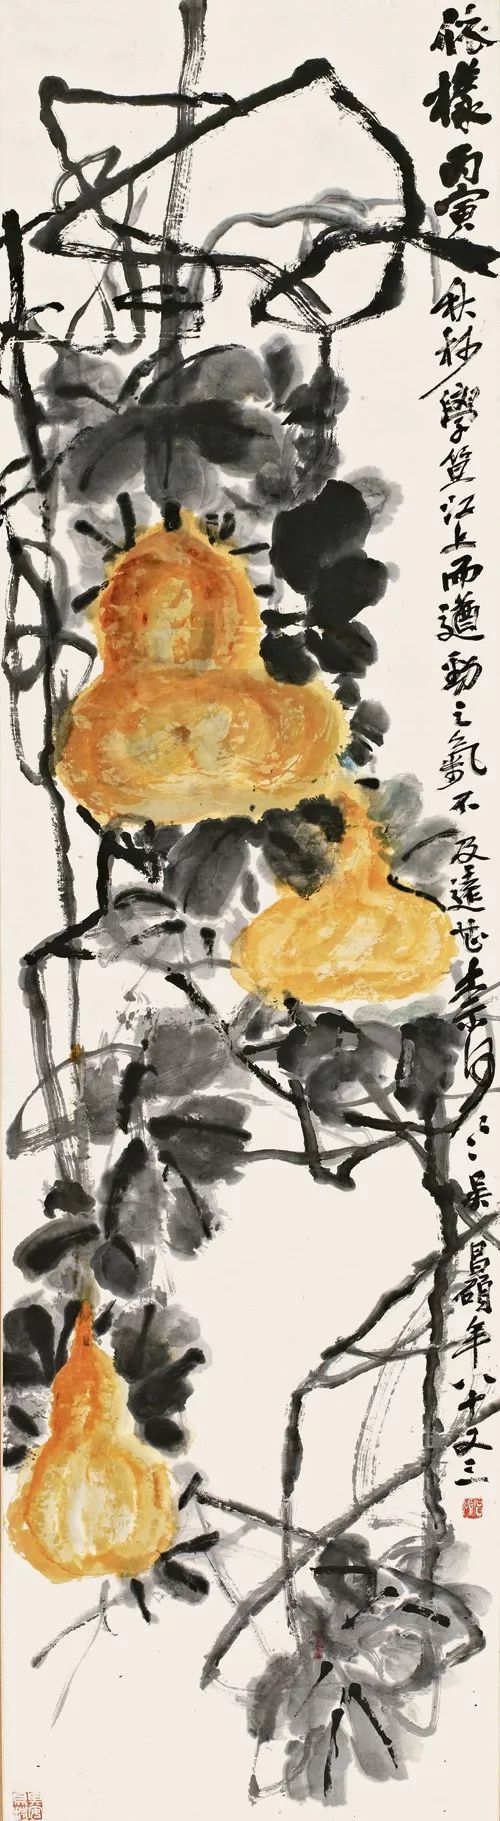 依樣丙寅秋杪學笪江上而遒勁之氣不及遠甚柰何〻〻吳昌碩年八十又三